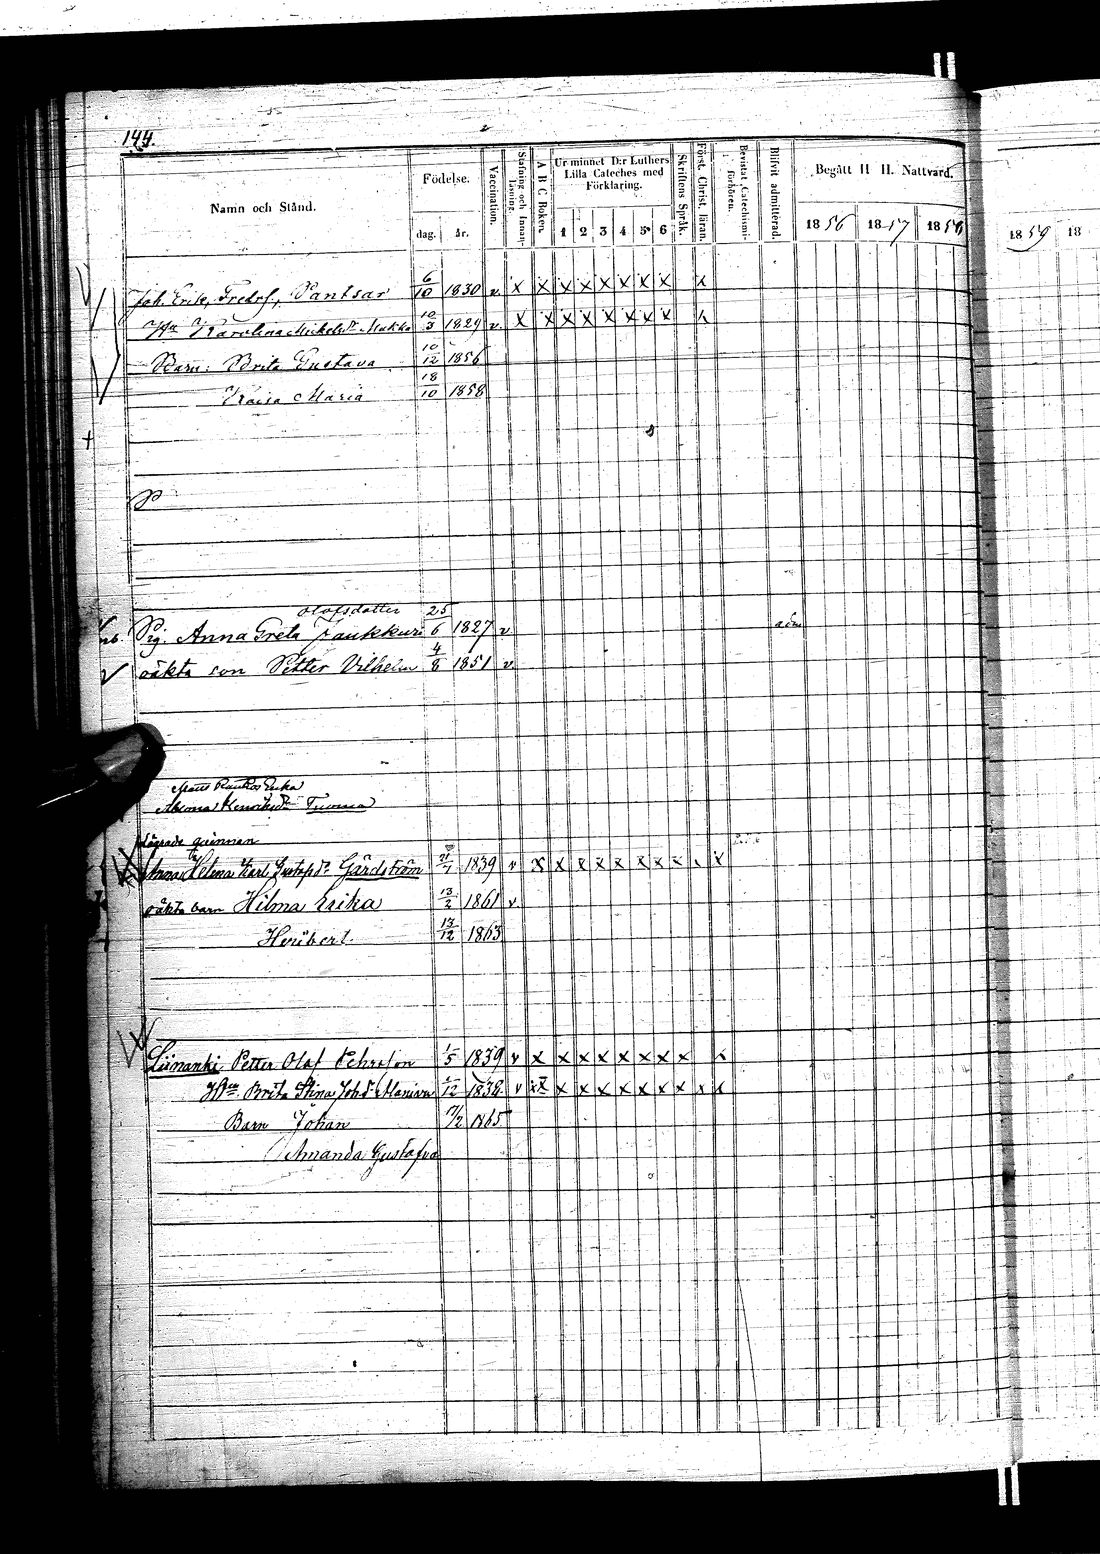 144.
Namn och Stånd. Födelse. dag. år. Vaccination. Stafning och Innanläsning. A B C Boken. Ur minnet D:r Luthers Lilla Cateches med Förklaring. 1 2 3 4 5 6 Skriftens Språk. Först. Christ. läran. Bevistat Catechismi-förhören. Blifvit admitterad. Begått H. H. Nattvard. 1856 1857 1858 1859 18
Joh. Erik Fredrs. Pantsar 6/10 1830 v. x x x x x x x x x
Hu Karolina Mickelsdr 10/3 1829 v. x x x x x x x x
Barn: Brita Gustava 10/12 1856
Kaisa Maria 18/10 1858
+
P
Olofsdotter
Pig. Anna Greta 25/6 1827 v adm
oäkta son Petter Vilhelm 4/8 1851 v
Erika
Henriksdr Tuoma
Lägrade qvinnan
Anna Helena Karl Gustafsdr Gärdström 1839 v x x x x x x x x x x
oäkta barn Hilma Erika 13/2 1861 v
Heribert. 13/12 1863
Liinanki Petter Olof Pehrsson 1/5 1839 v x x x x x x x x x
Hu Brita Stina Johsdr 1838 v x x x x x x x x x x
Barn Johan 1865
Amanda Gustafva